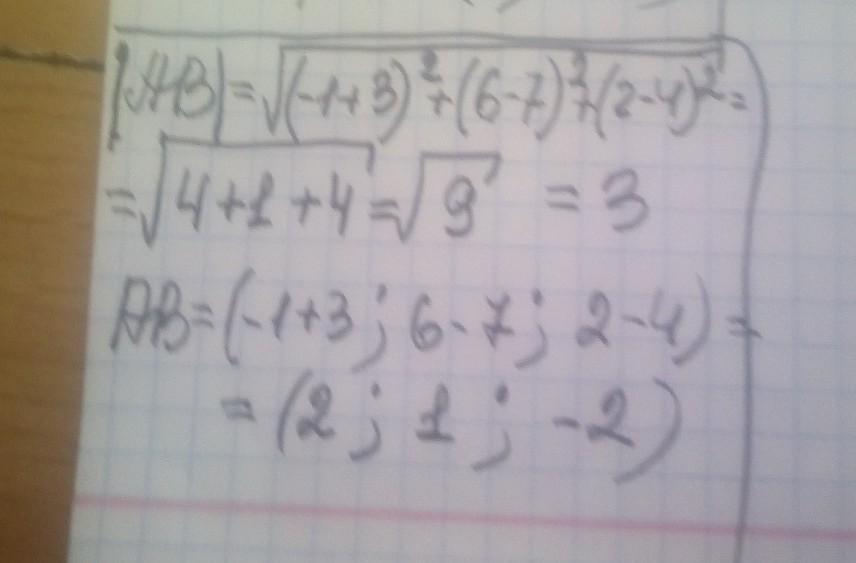 |AB| = √(-1+3)²+(6-7)²+(2-4)² =
= √4+1+4 = √9 = 3
AB = (-1+3; 6-7; 2-4) =
= (2; 1; -2)